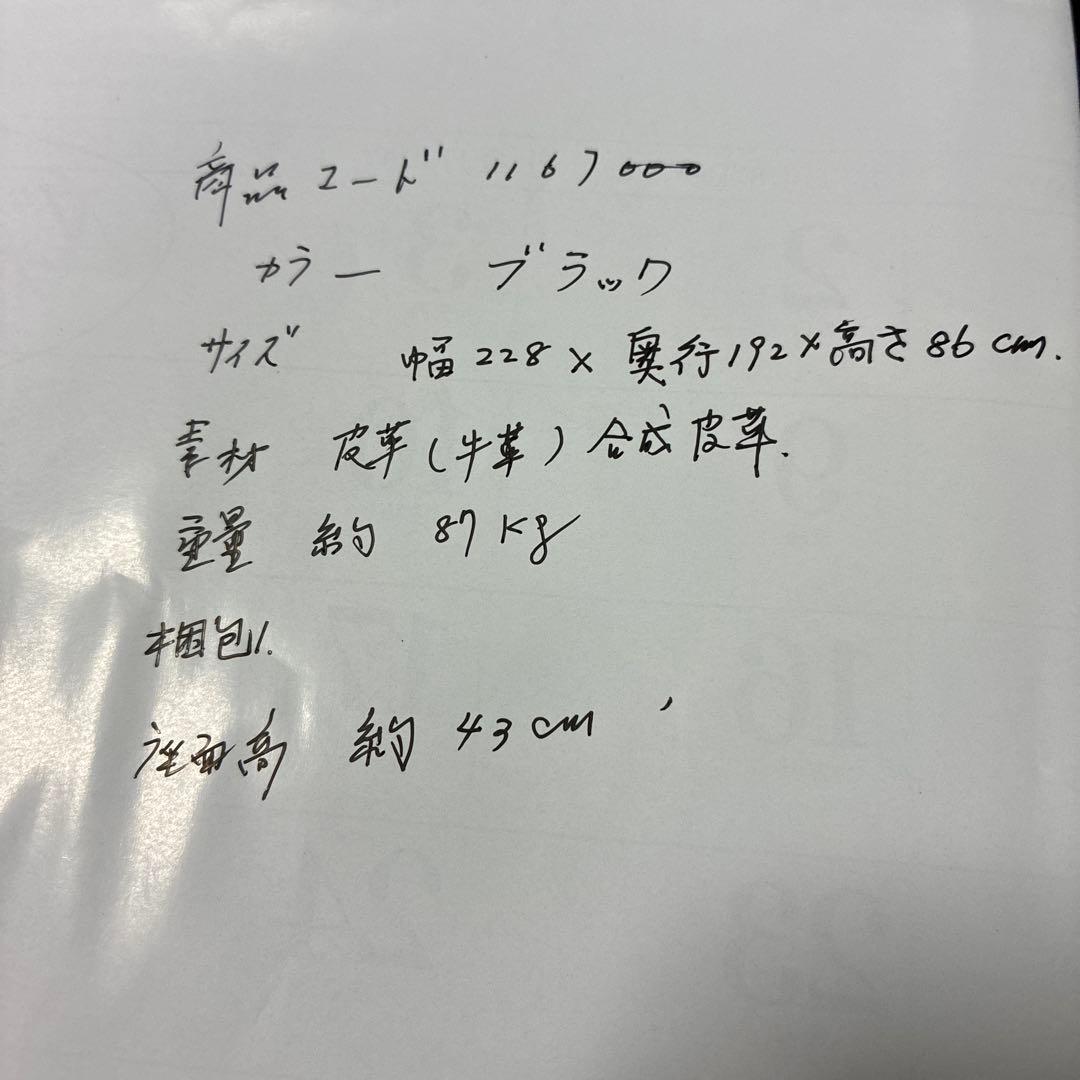 商品コード 1167000
カラー ブラック
サイズ 幅228×奥行192×高さ86cm.
素材 皮革(牛革)合成皮革.
重量 約 87kg
梱包1.
座面高 約 43cm